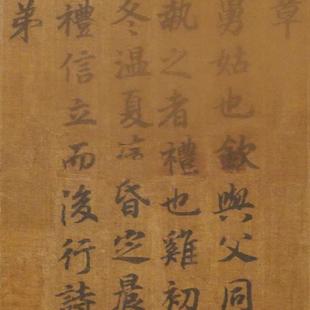 章
舅姑也欽與父同
執之者禮也雞初
冬溫夏凊昏定晨
禮信立而後行詩
弟